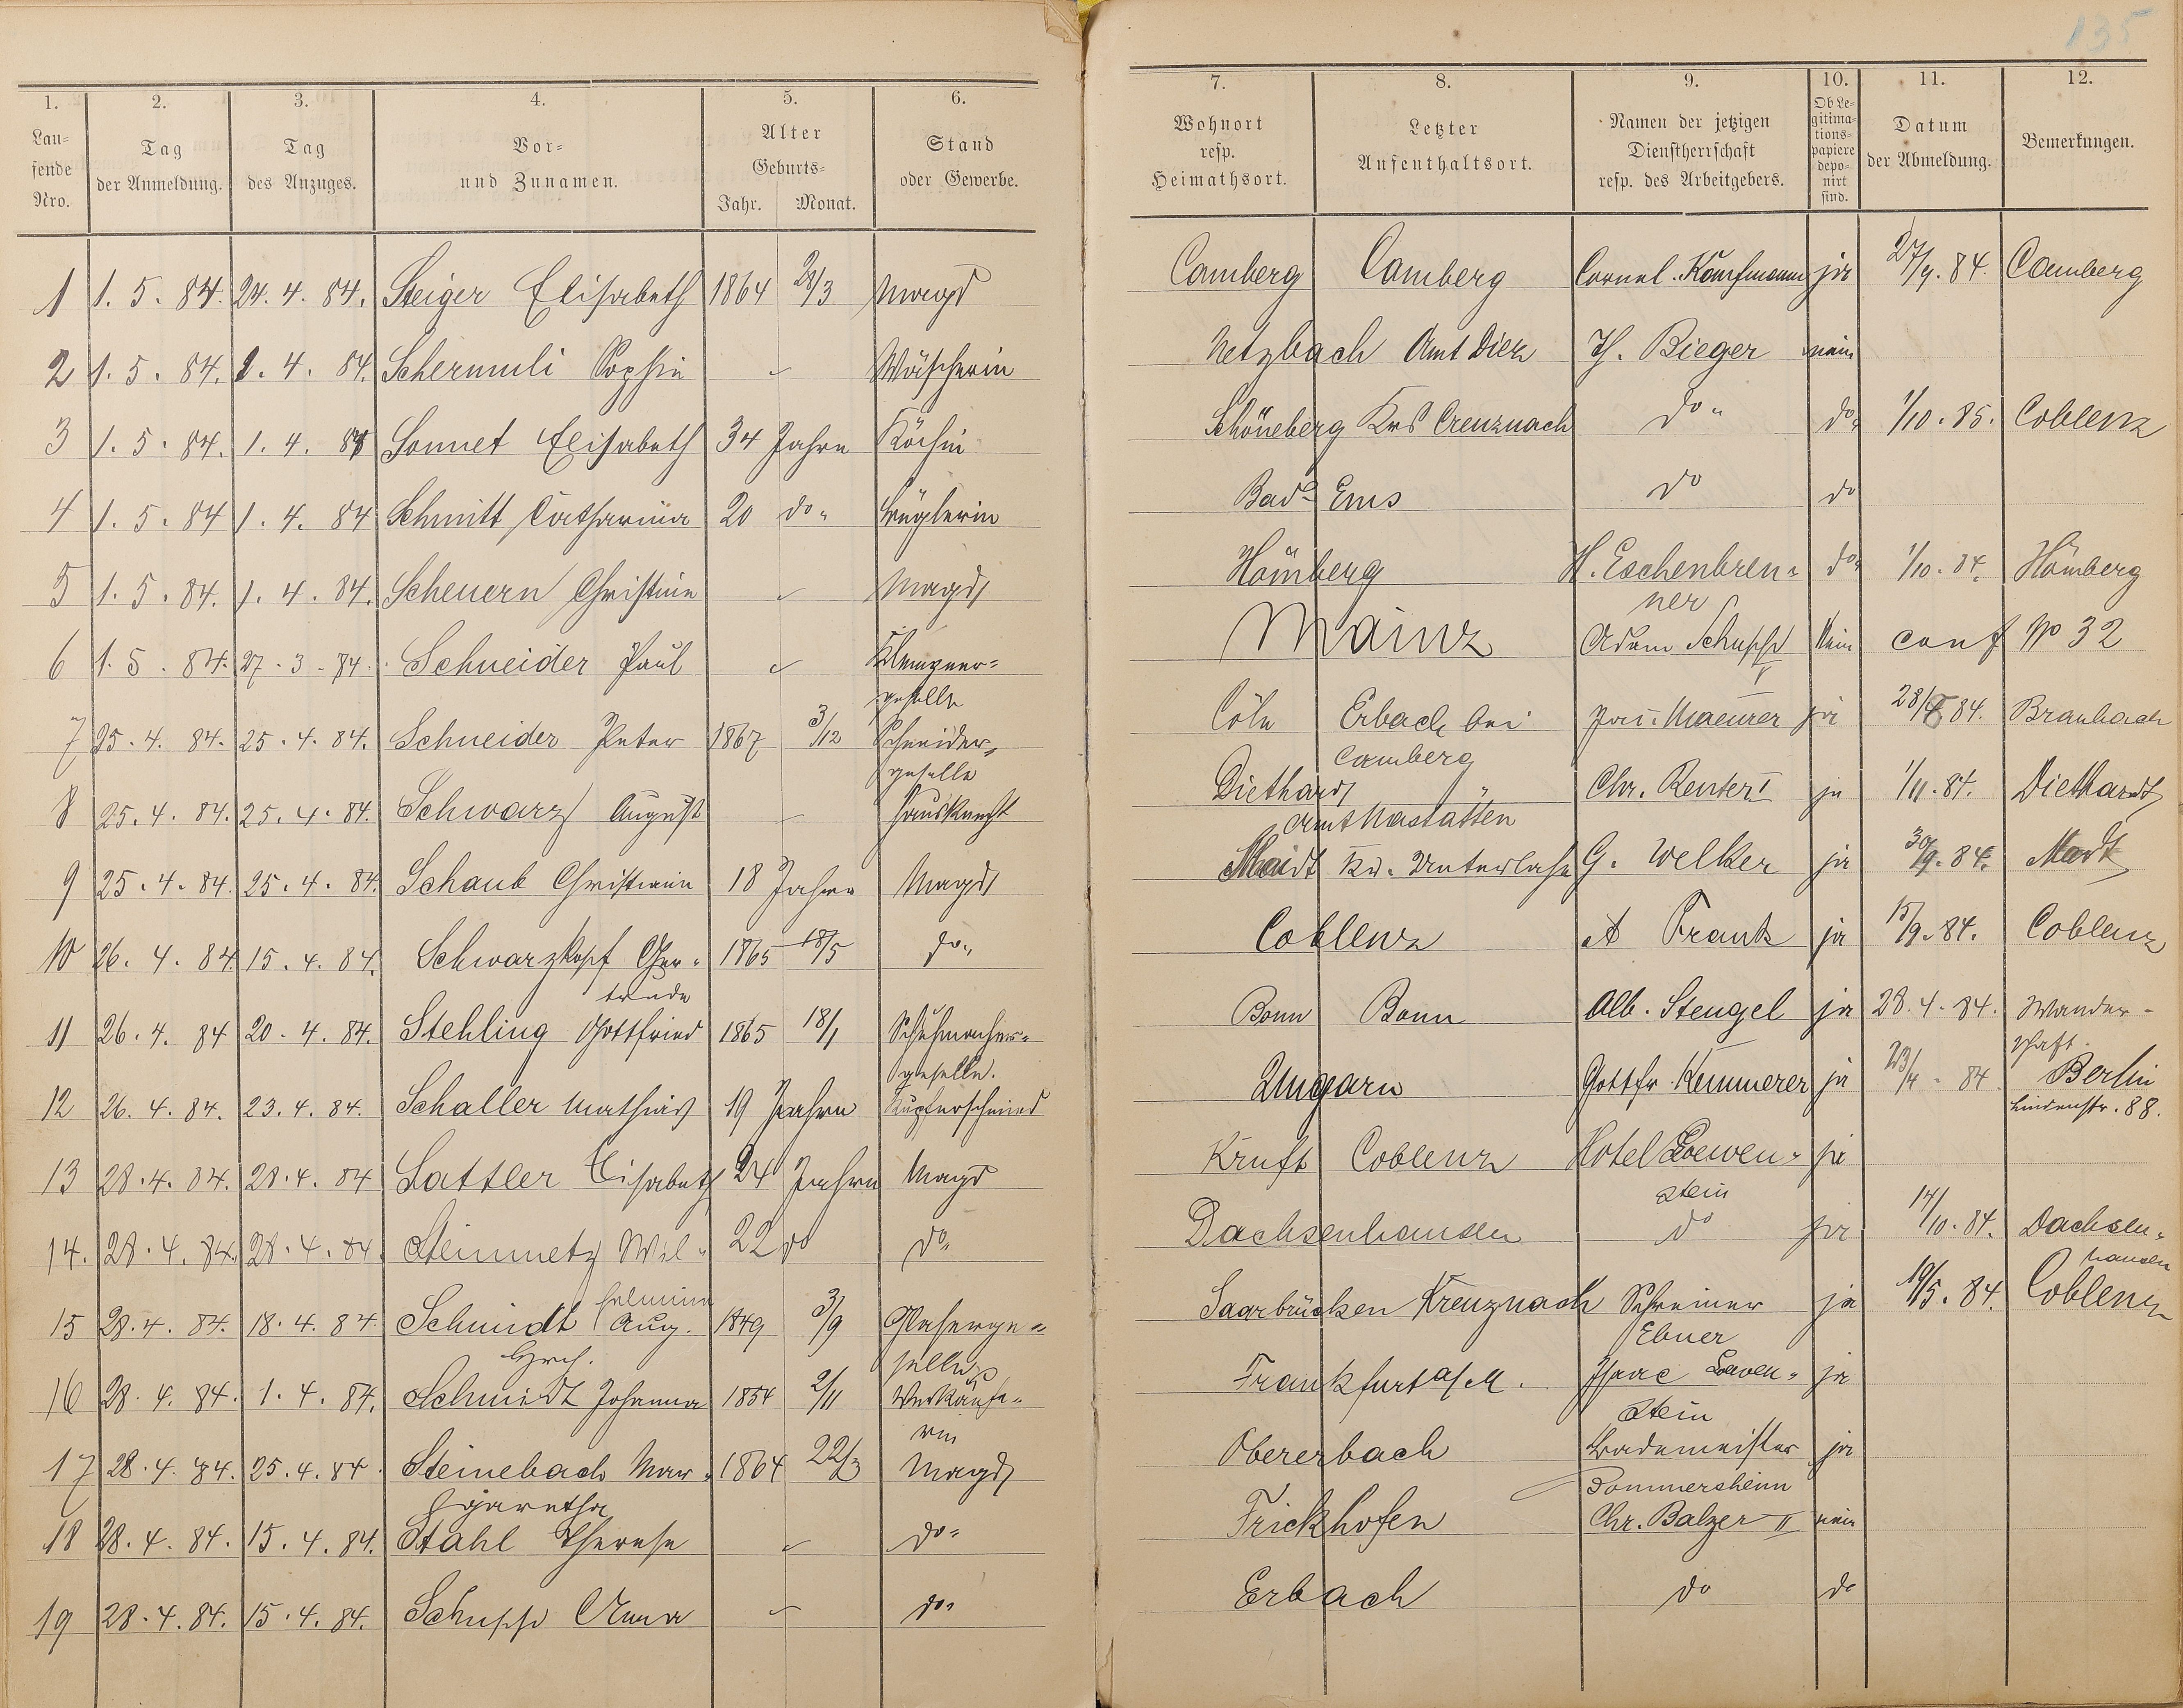 135
1. 2. 3. 4. 5. 6. 7. 8. 9. 10. 11. 12.
Lau-
fende
Nro.
Tag
der Anmeldung.
Tag
des Anzuges.
Vor-
und Zunamen.
Alter
Geburts-
Jahr. Monat.
Stand
oder Gewerbe.
Wohnort
resp.
Heimathsort.
Letzter
Aufenthaltsort.
Namen der jetzigen
Dienstherrschaft
resp. des Arbeitgebers.
Ob Le-
gitima-
tions-
papiere
depo-
nirt
sind.
Datum
der Abmeldung.
Bemerkungen.
1 1. 5. 84. 24. 4. 84. Steiger Elisabeth 1864 28/3 Magd Camberg Camberg Cornel. Kaufmann ja 27/9. 84. Camberg
2 1. 5. 84. 1. 4. 84. Schermuli Sophie - Wäscherin Netzbach Amt Diez Th. Bieger nein
3 1. 5. 84. 1. 4. 84 Sonnet Elisabeth 34 Jahre Köchin Schöneberg Krs Creuznach do " do " 1/10. 85. Coblenz
4 1. 5. 84 1. 4. 84 Schmitt Catharina 20 do " Büglerin Bad Ems do do
5 1. 5. 84. 1. 4. 84. Scheuern Christine - Magd Hömberg H. Eschenbren-
ner do " 1/10. 84. Hömberg
6 1. 5. 84. 27. 3. 84. Schneider Paul - Klempner-
geselle Mainz Adam Schupp V Nein conf No 32
7 25. 4. 84. 25. 4. 84. Schneider Peter 1867 3/12 Schneider-
geselle Cöln Erbach bei
Camberg Jac. Maeurer ja 28/ 84. Braubach
8 25. 4. 84. 25. 4. 84. Schwarz August - Hausknecht Diethardt "
Amt Nastätten Chr. Reuter I ja 1/11. 84. Diethardt
9 25. 4. 84. 25. 4. 84. Schaub Christiane 18 Jahre Magd Kr. Unterlahn G. Welker ja 30/9. 84.
10 26. 4. 84. 15. 4. 84. Schwarzkopf Ger-
trude 1865 18/5 do " Coblenz A Frank ja 15/9. 84. Coblenz
11 26. 4. 84 20. 4. 84. Stehling Gottfried 1865 18/1 Schuhmacher-
geselle. Bonn Bonn Alb. Stengel ja 28. 4. 84. Wander-
schaft.
12 26. 4. 84. 23. 4. 84. Schaller Mathias 19 Jahre Kupferschmied Ungarn Gottfr. Kemmerer ja 23/4 84 Berlin
Lindenstr. 88.
13 28. 4. 84. 28. 4. 84 Sattler Elisabeth 24 Jahre Magd Kruft Coblenz Hotel Loewen-
stein ja
14. 28. 4. 84. 28. 4. 84. Steinmetz Wil-
helmine 22 do do " Dachsenhausen do ja 14/10. 84. Dachsen-
hausen
15 28. 4. 84. 18. 4. 84. Schmidt Aug.
Hrch. 1849 3/9 Glaserge-
selle Saarbrücken Kreuznach Schreiner
Ebner ja 19/5. 84. Coblenz
16 28. 4. 84. 1. 4. 84. Schmidt Johanna 1854 2/11 Verkäufe-
rin Frankfurt a/M. Isaac Loewen-
stein ja
17 28. 4. 84. 25. 4. 84. Steinebach Mar-
garetha 1864 22/3 Magd Obererbach Bademeister
Sommersheim ja
18 28. 4. 84. 15. 4. 84. Stahl Therese - do " Frickhofen Chr. Balzer II nein
19 28. 4. 84. 15. 4. 84. Schupp Anna - do " Erbach do do